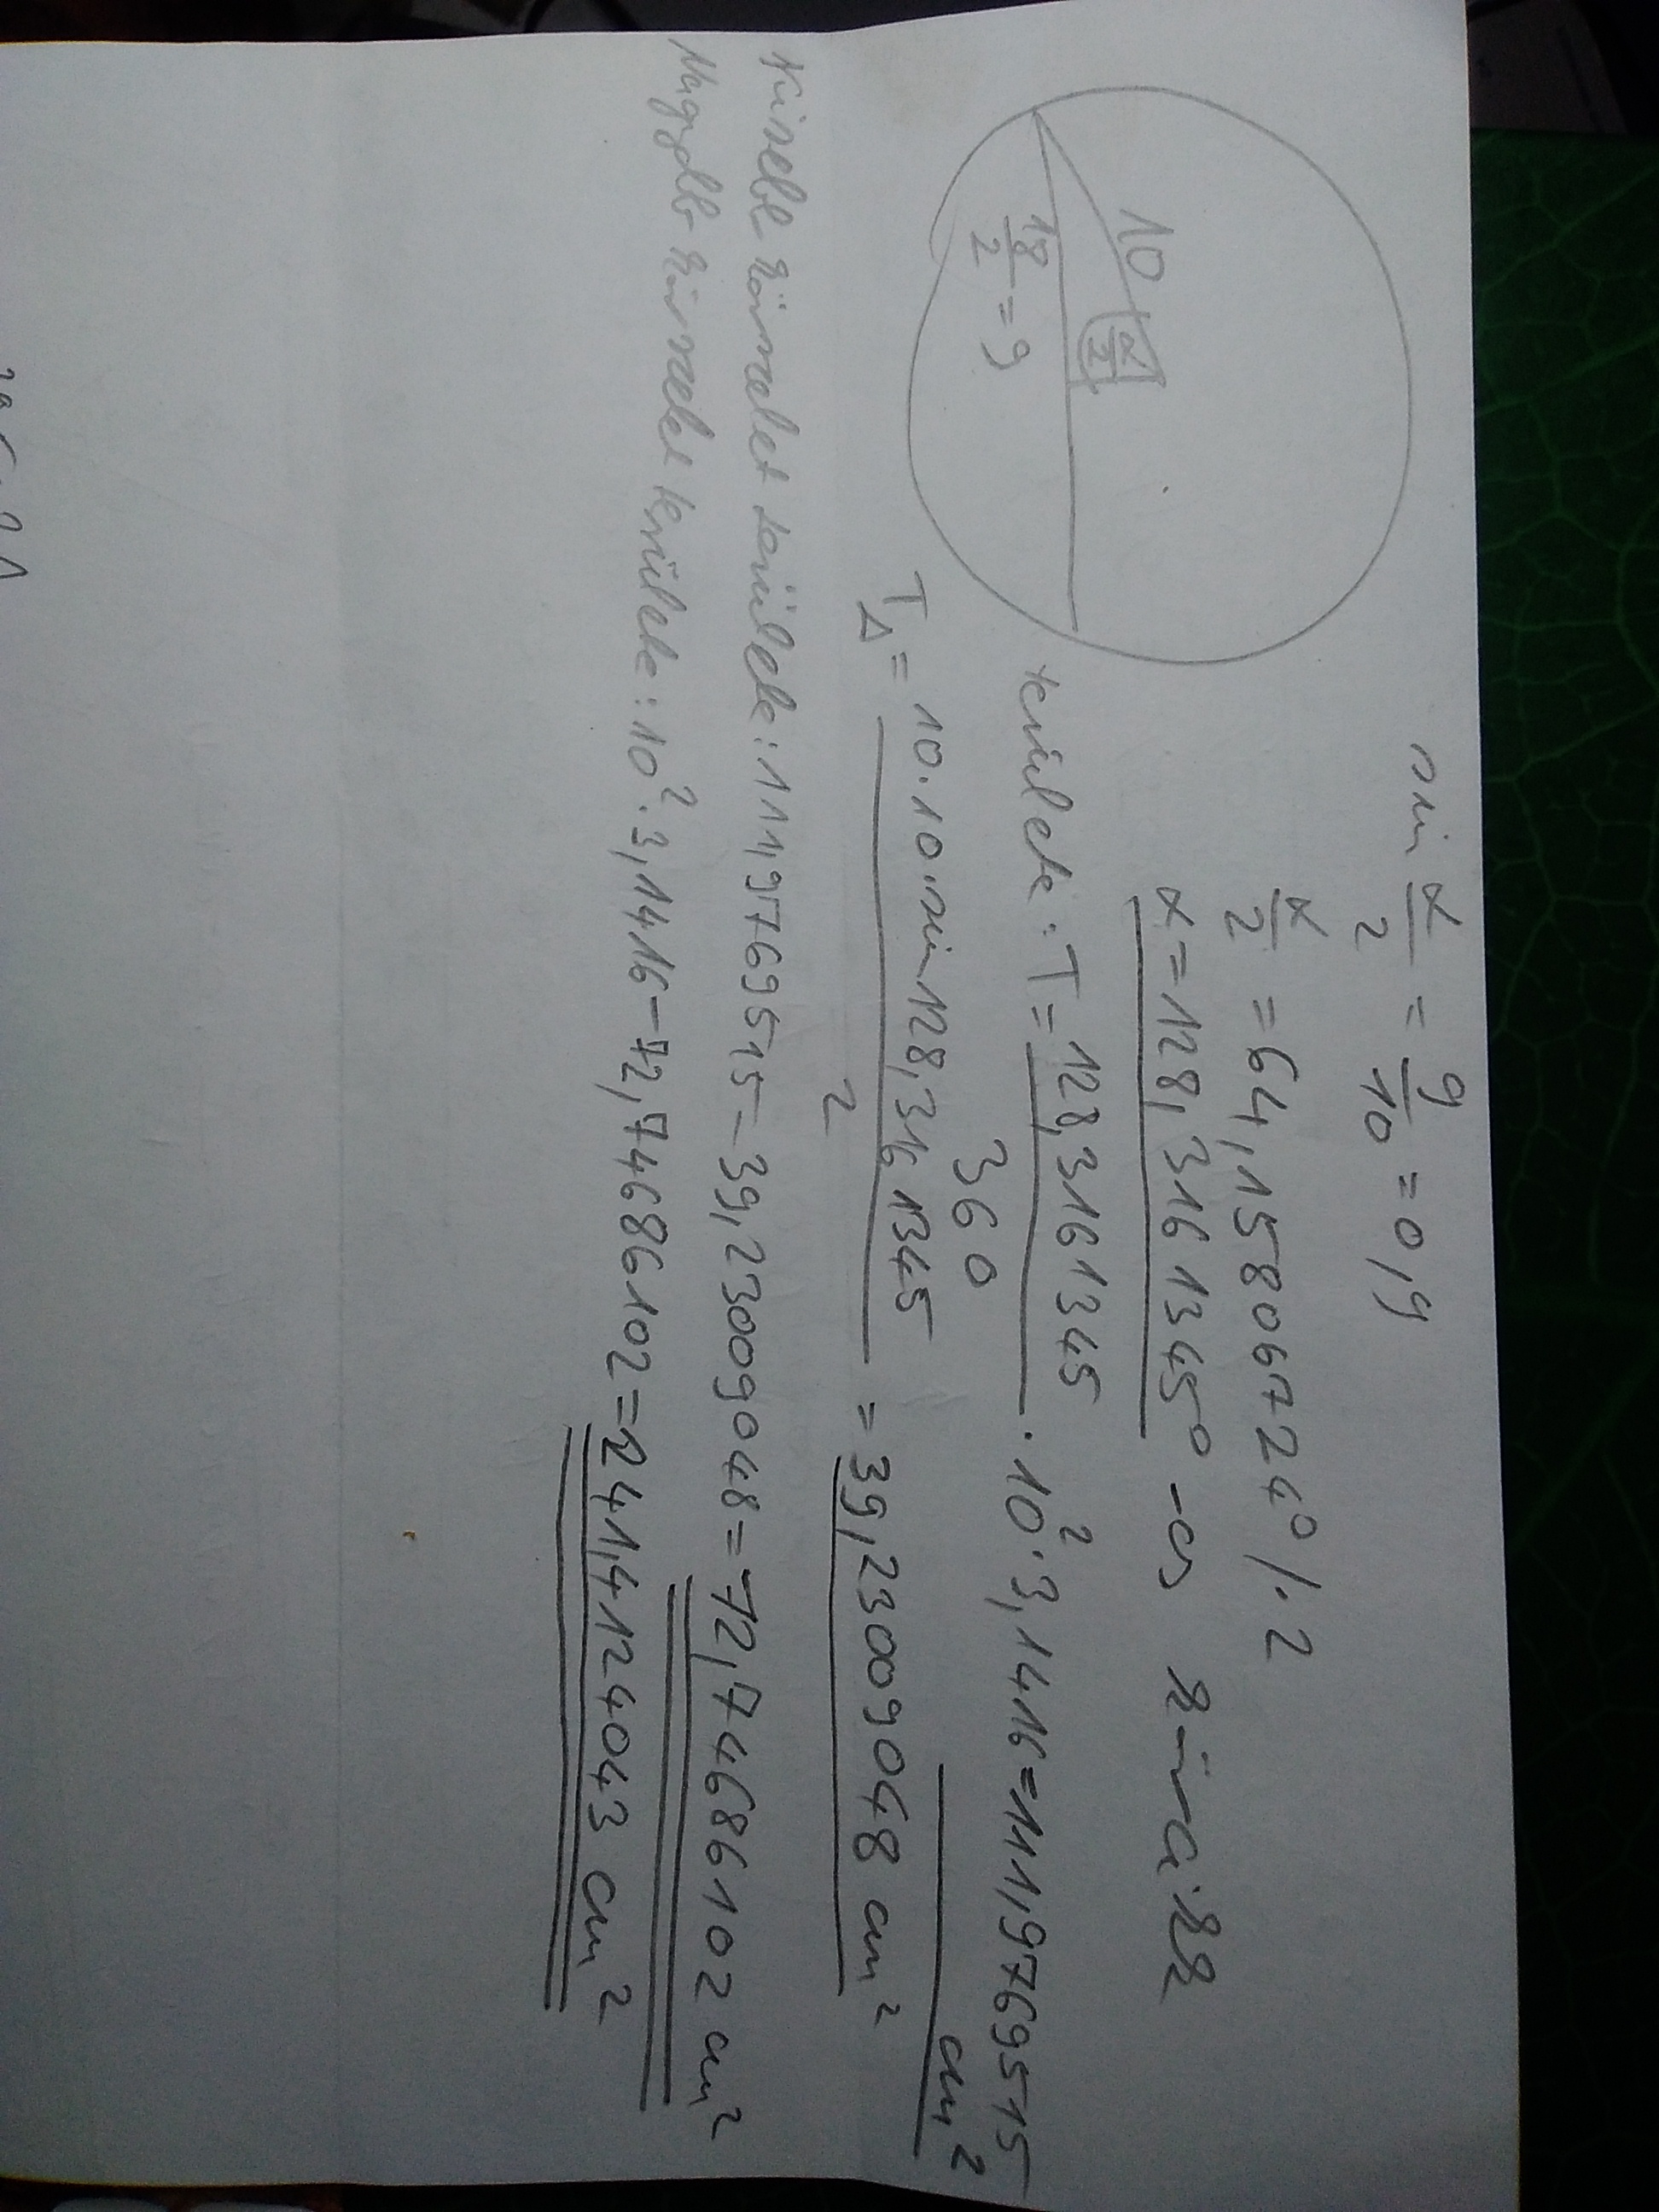 sin α/2 = 9/10 = 0,9
α/2 = 64,15806724° /·2
α = 128,3161345°-os
10
α/2
18/2 = 9
területe: T = 128,3161345/360 · 10² · 3,1416 = 111,9769515 cm²
T△ = 10·10·sin 128,3161345/2 = 39,23009048 cm²
Kisebb körszelet területe: 111,9769515 - 39,23009048 = 72,74686102 cm²
Nagyobb körszelet területe: 10² · 3,1416 - 72,74686102 = 241,4124043 cm²